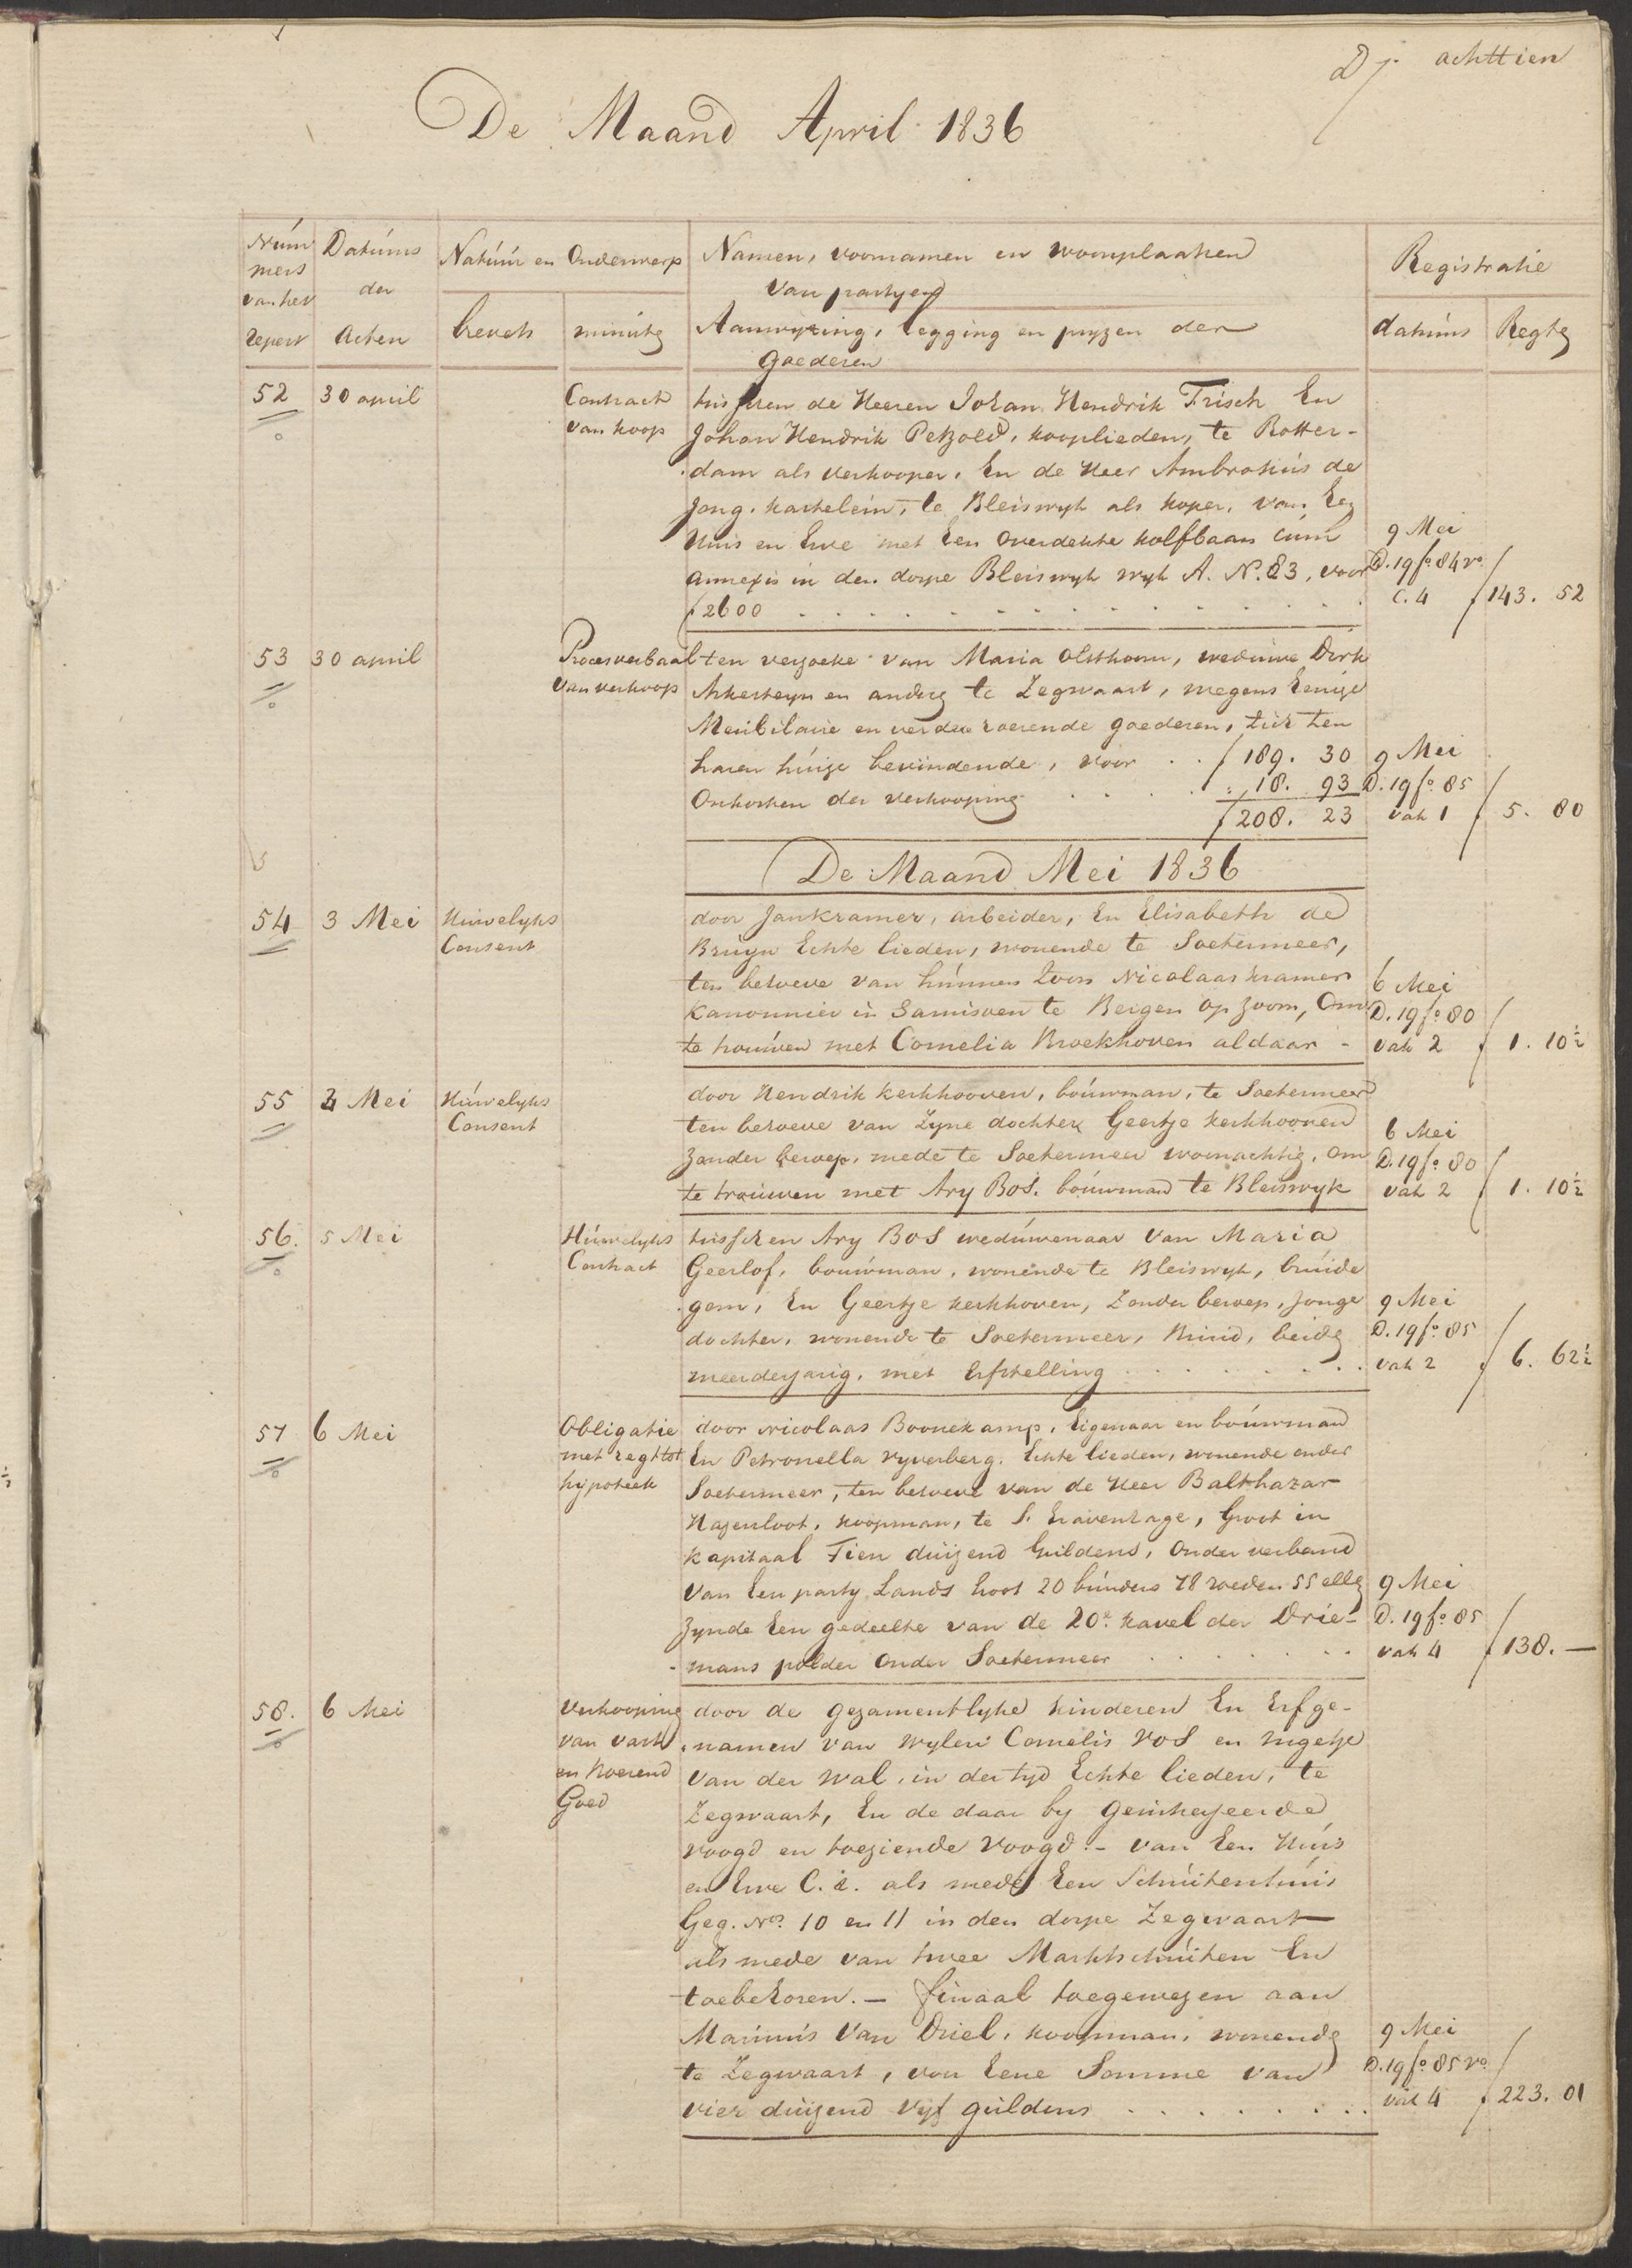 achttien
De Maand April 1836
Núm
mers
van het
repert
Datúms
der
Acten
Natúúr en Onderwerp
brevets
minúte
Namen, voornamen en woonplaatsen
van partyen
Aanwyzing, legging en pryzen der
goederen
Registratie
datúms
Regte
52
30 april
Contract
van koop
tusschen de Heeren Johan Hendrik Frisch En
Johan Hendrik Petzold, kooplieden, te Rotter-
dam als verkooper, En de Heer Ambrosius de
Jong, kastelein, te Bleiswyk als koper, van Een
Huis en Erve met Een Overdekte kolfbaan cúm
annexis in den dorpe Bleiswyk wyk A. N. 83, voor
f 2600
9 Mei
D. 19 fo. 84 vo
C. 4
f 143. 52
53
30 april
Procesverbaal
van verkoop
ten verzoeke van Maria Olsthoorn, weduwe Dirk
Ankersteyn en andere te Zegwaart, wegens Eenige
Meubilaire en verdere roerende goederen, zich ten
haren húize bevindende, voor f 189. 30
Onkosten der verkooping 18. 93
f 208. 23
9 Mei
D. 19 fo. 85
vak 1
f 5. 80
De Maand Mei 1836
54
3 Mei
Húwelyks
Consent
door Jan Kramer, arbeider, En Elisabeth de
Bruyn Echte lieden, wonende te Soetermeer,
ten behoeve van húnnen Zoon Nicolaas Kramer
Kanonnier in Garnisoen te Bergen op Zoom, Om
te trouwen met Cornelia Broekhoven aldaar -
6 Mei
D. 19 fo. 80
vak 2
f 1. 10½
55
4 Mei
Húwelyks
Consent
door Hendrik Kerkhooven, boúwman, te Soetermeer
ten behoeve van Zyne dochter Geertje Kerkhooven
Zonder beroep, mede te Soetermeer woonachtig, om
te trouwen met Ary Bos, boúwman te Bleiswyk
6 Mei
D. 19 fo. 80
vak 2
f 1. 10½
56.
5 Mei
Húwelyks
Contract
tusschen Ary Bos wedúwenaar van Maria
Geerlof, boúwman, wonende te Bleiswyk, brúide
gom, En Geertje Kerkhoven, Zonder beroep, Jonge
dochter, wonende te Soetermeer, Bruid, beide
meerderjarig, met Erfstelling
9 Mei
D. 19 fo. 85
vak 2
f 6. 62½
57
6 Mei
Obligatie
met regt tot
hypotheek
door Nicolaas Boonekamp, Eigenaar en boúwman
En Petronella Vyverberg, Echte lieden, wonende onder
Soetermeer, ten behoeve van de Heer Balthazar
Hazenloot, koopman, te S. Gravenhage, Groot in
kapitaal Tien duizend Guldens, Onder verband
van Een party Lands Groot 20 búnders 78 roeden 55 elle
Zynde Een gedeelte van de 20e. Kavel der Drie-
mans polder Onder Soetermeer
9 Mei
D. 19 fo. 85
vak 4
f 138. —
58.
6 Mei
Verkooping
van vast
en Roerend
Goed
door de gezamentlyke kinderen En Erfge-
namen van wylen Cornelis Vos en Ingetje
van der Wal, in der tyd Echte lieden, te
Zegwaart, En de daar by geinteresseerde
voogd en toeziende Voogd - van Een Húis
en Erve C. a. als mede Een Schúitenhúis
Geg. Nos. 10 en 11 in den dorpe Zegwaart
als mede van twee Marktschúiten En
toebehoren. — finaal toegewezen aan
Marinús van Driel, koopman, wonende
te Zegwaart, voor Eene Somme van
vier duizend Vyf guldens
9 Mei
D. 19 fo. 85 vo
vak 4
f 223. 01